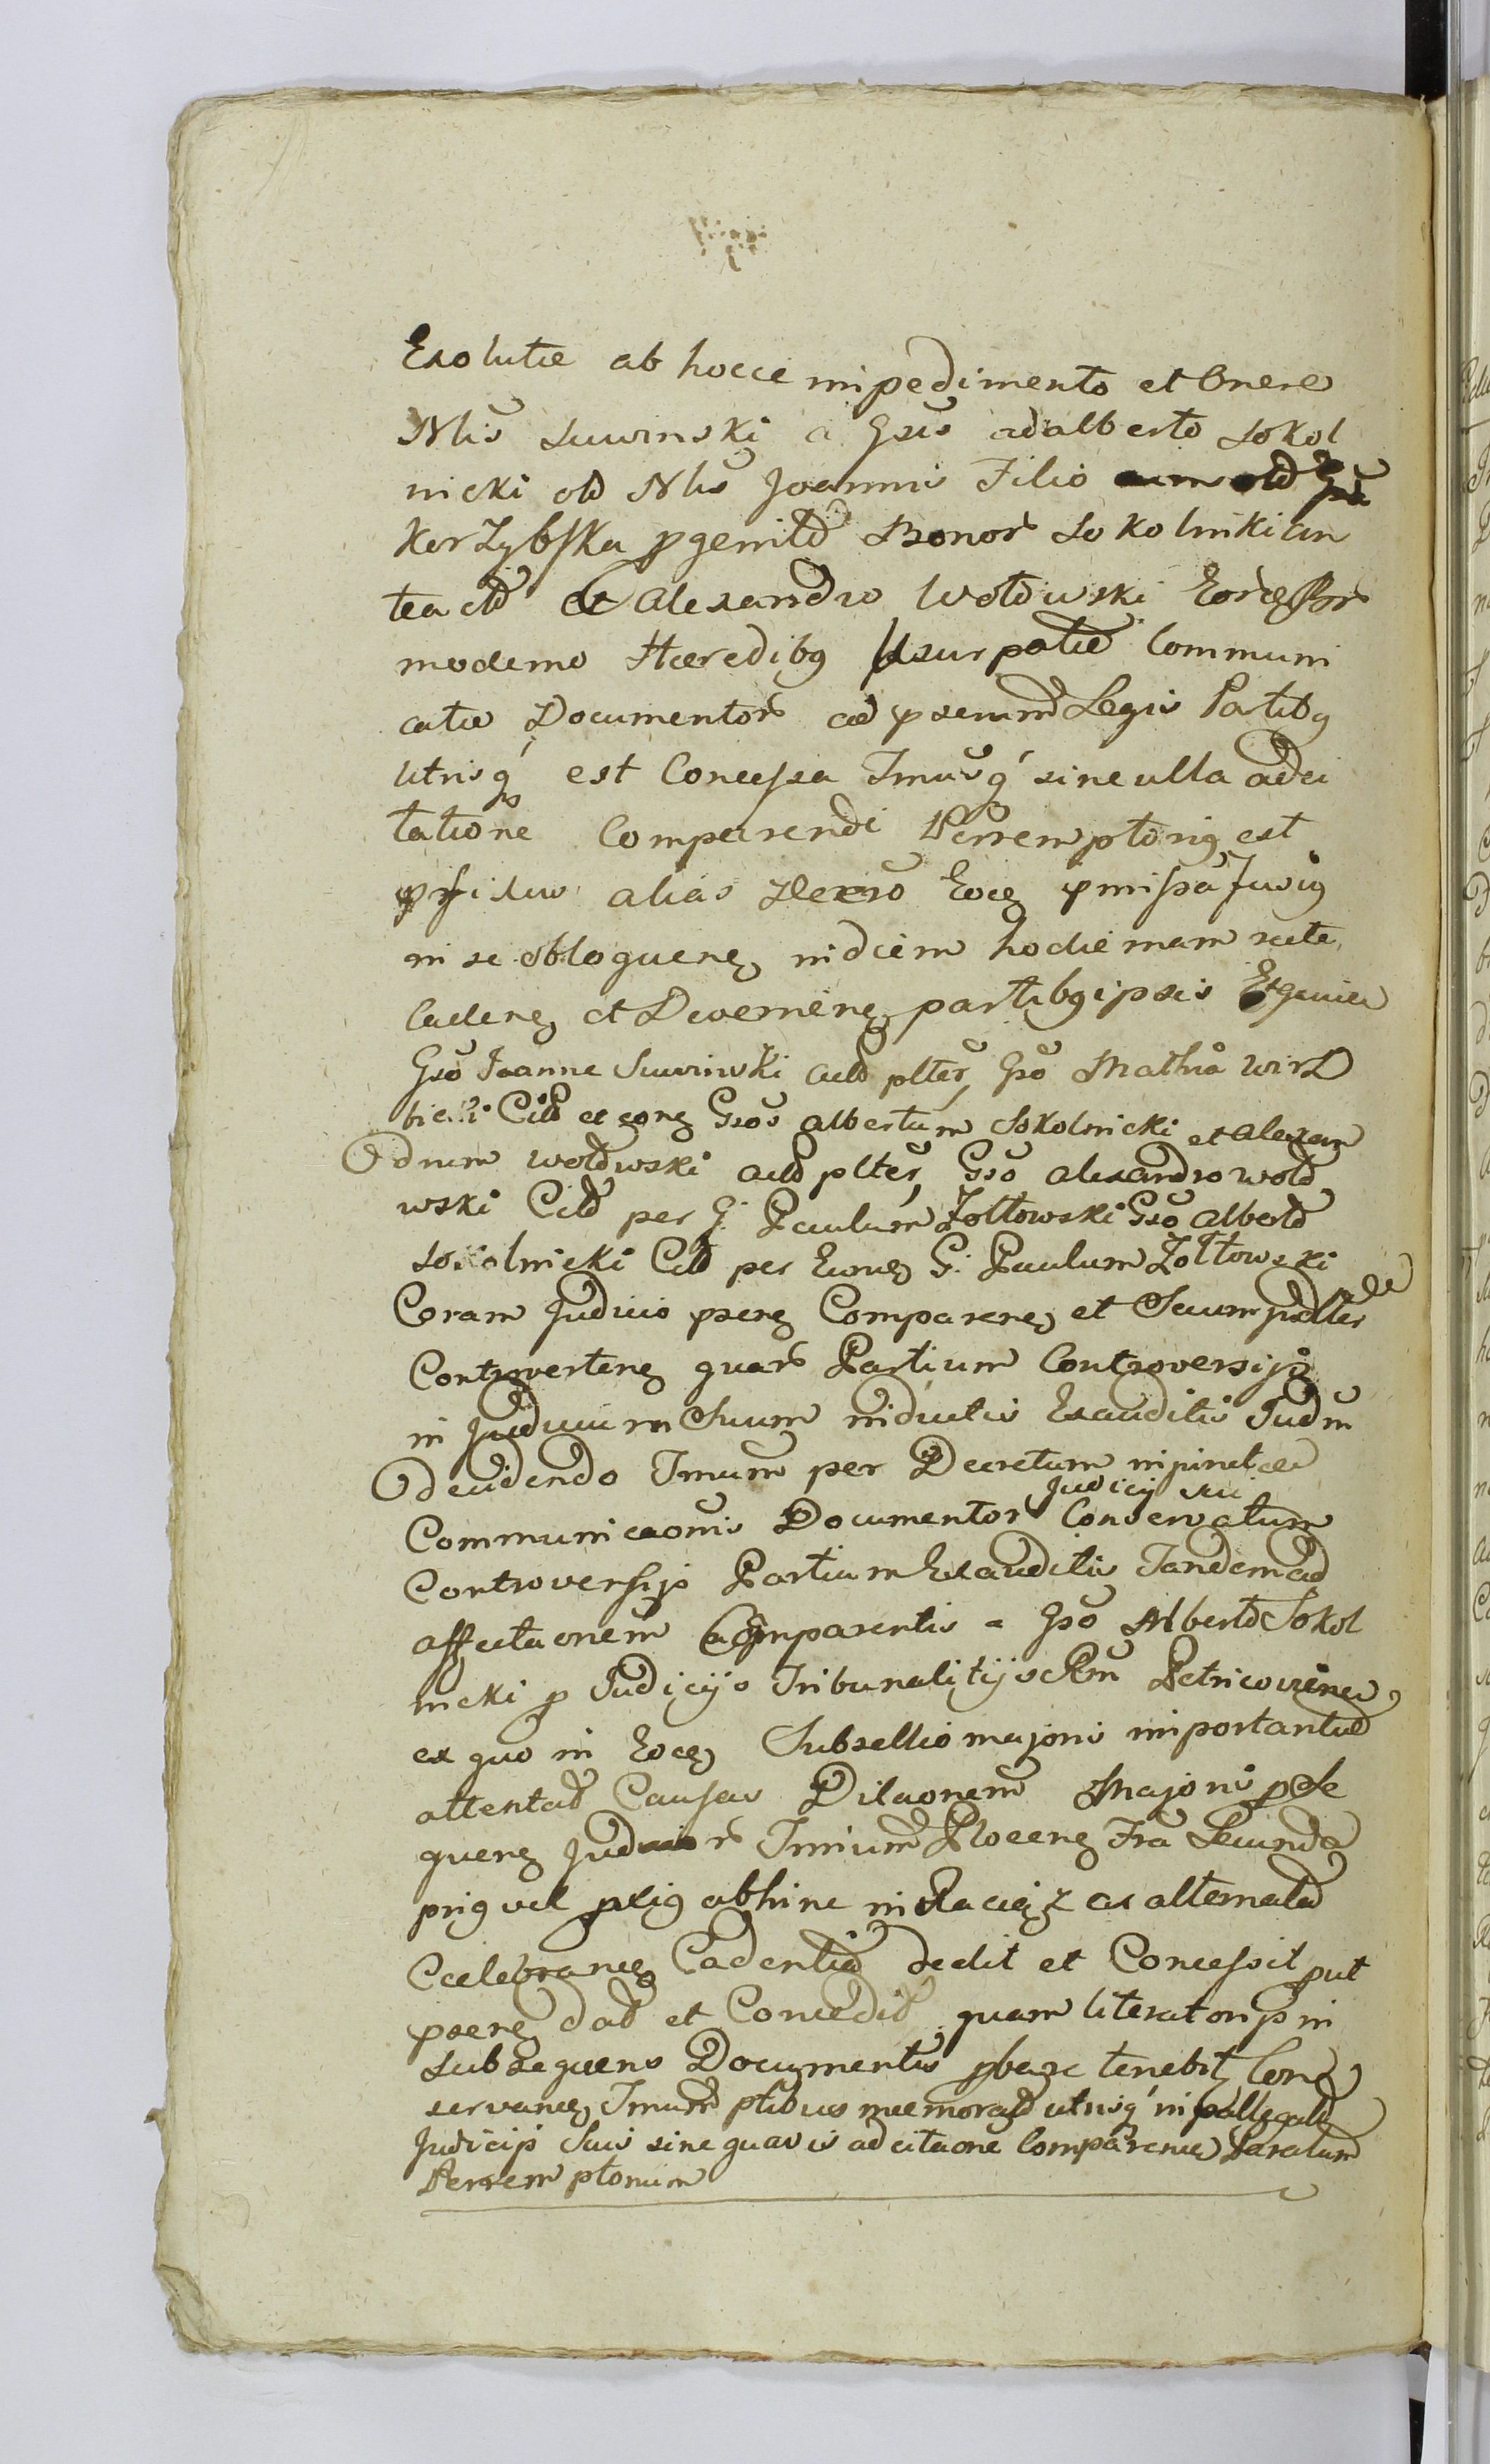 Exolutæ ab hocce impedimento et Onere
Nlis Suwinski a Gsis adalberto Sokol
nicki old Nlis Joannis Filio
Korzybska pgenitd Bonor Sokolniki an
teactd et Alexandro Wołowski Eor
moderno Hæredibg Usurpatæ Communi
catæ Documentor ad psenm Legis Partibg
Utrisq est Concessa Tmusq sine ulla adci
tatione Comparendi Perremptorig est
alias Eoceg pmissa
in se obloqueneg in diem hodiernam recte
Cadeneg et Deveniencg partibg ipsis Et quia
Gso Joanne Suwinski actd plter, Gso Mathia Wirz
bicki Citd et eoneg Gsos Albertum Sokolnicki et Alexan
drum Wołowski actd plter, Gso Alexandro Woło
wski Citd per G: Paulum Żołtowski Gso Albertd
Sokolnicki Citd per Eunд G: Paulum Żołtowski
Coram Judicio pseneg Compareneg et Secum plter de
Controverteneg quar Partium Controversijs
in Judicium Suum inductis Exauditis Judm
decidendo Tmum per Decretum
Communicaonis Documentor Judicij sui Conservatum
Controversijs Partium Exauditis Tandem ad
affectaonem Comparentis a Gso Albertd Sokol
nicki p Judicijs Tribunalitijs Petricovien
ex quo in Eoceg Subsellio majoris importantiæ
attentad Causas Dilaonem Majoris p Se
queneg Judicior Tmium Ploceneg Fra Secunda
prig vel abhinc in Raciąz ex alternata
Cælebraneg Cadentia dedit et Concessit put
pseneg dat et Concedit quam literatorijs in
subsequens Documentis pbare tenebit Con
servaneg Tmum ptibus memorad utrisq in
Judicijs Suis sine quavis adcitaone Compareneg Paratum
Perremptorium